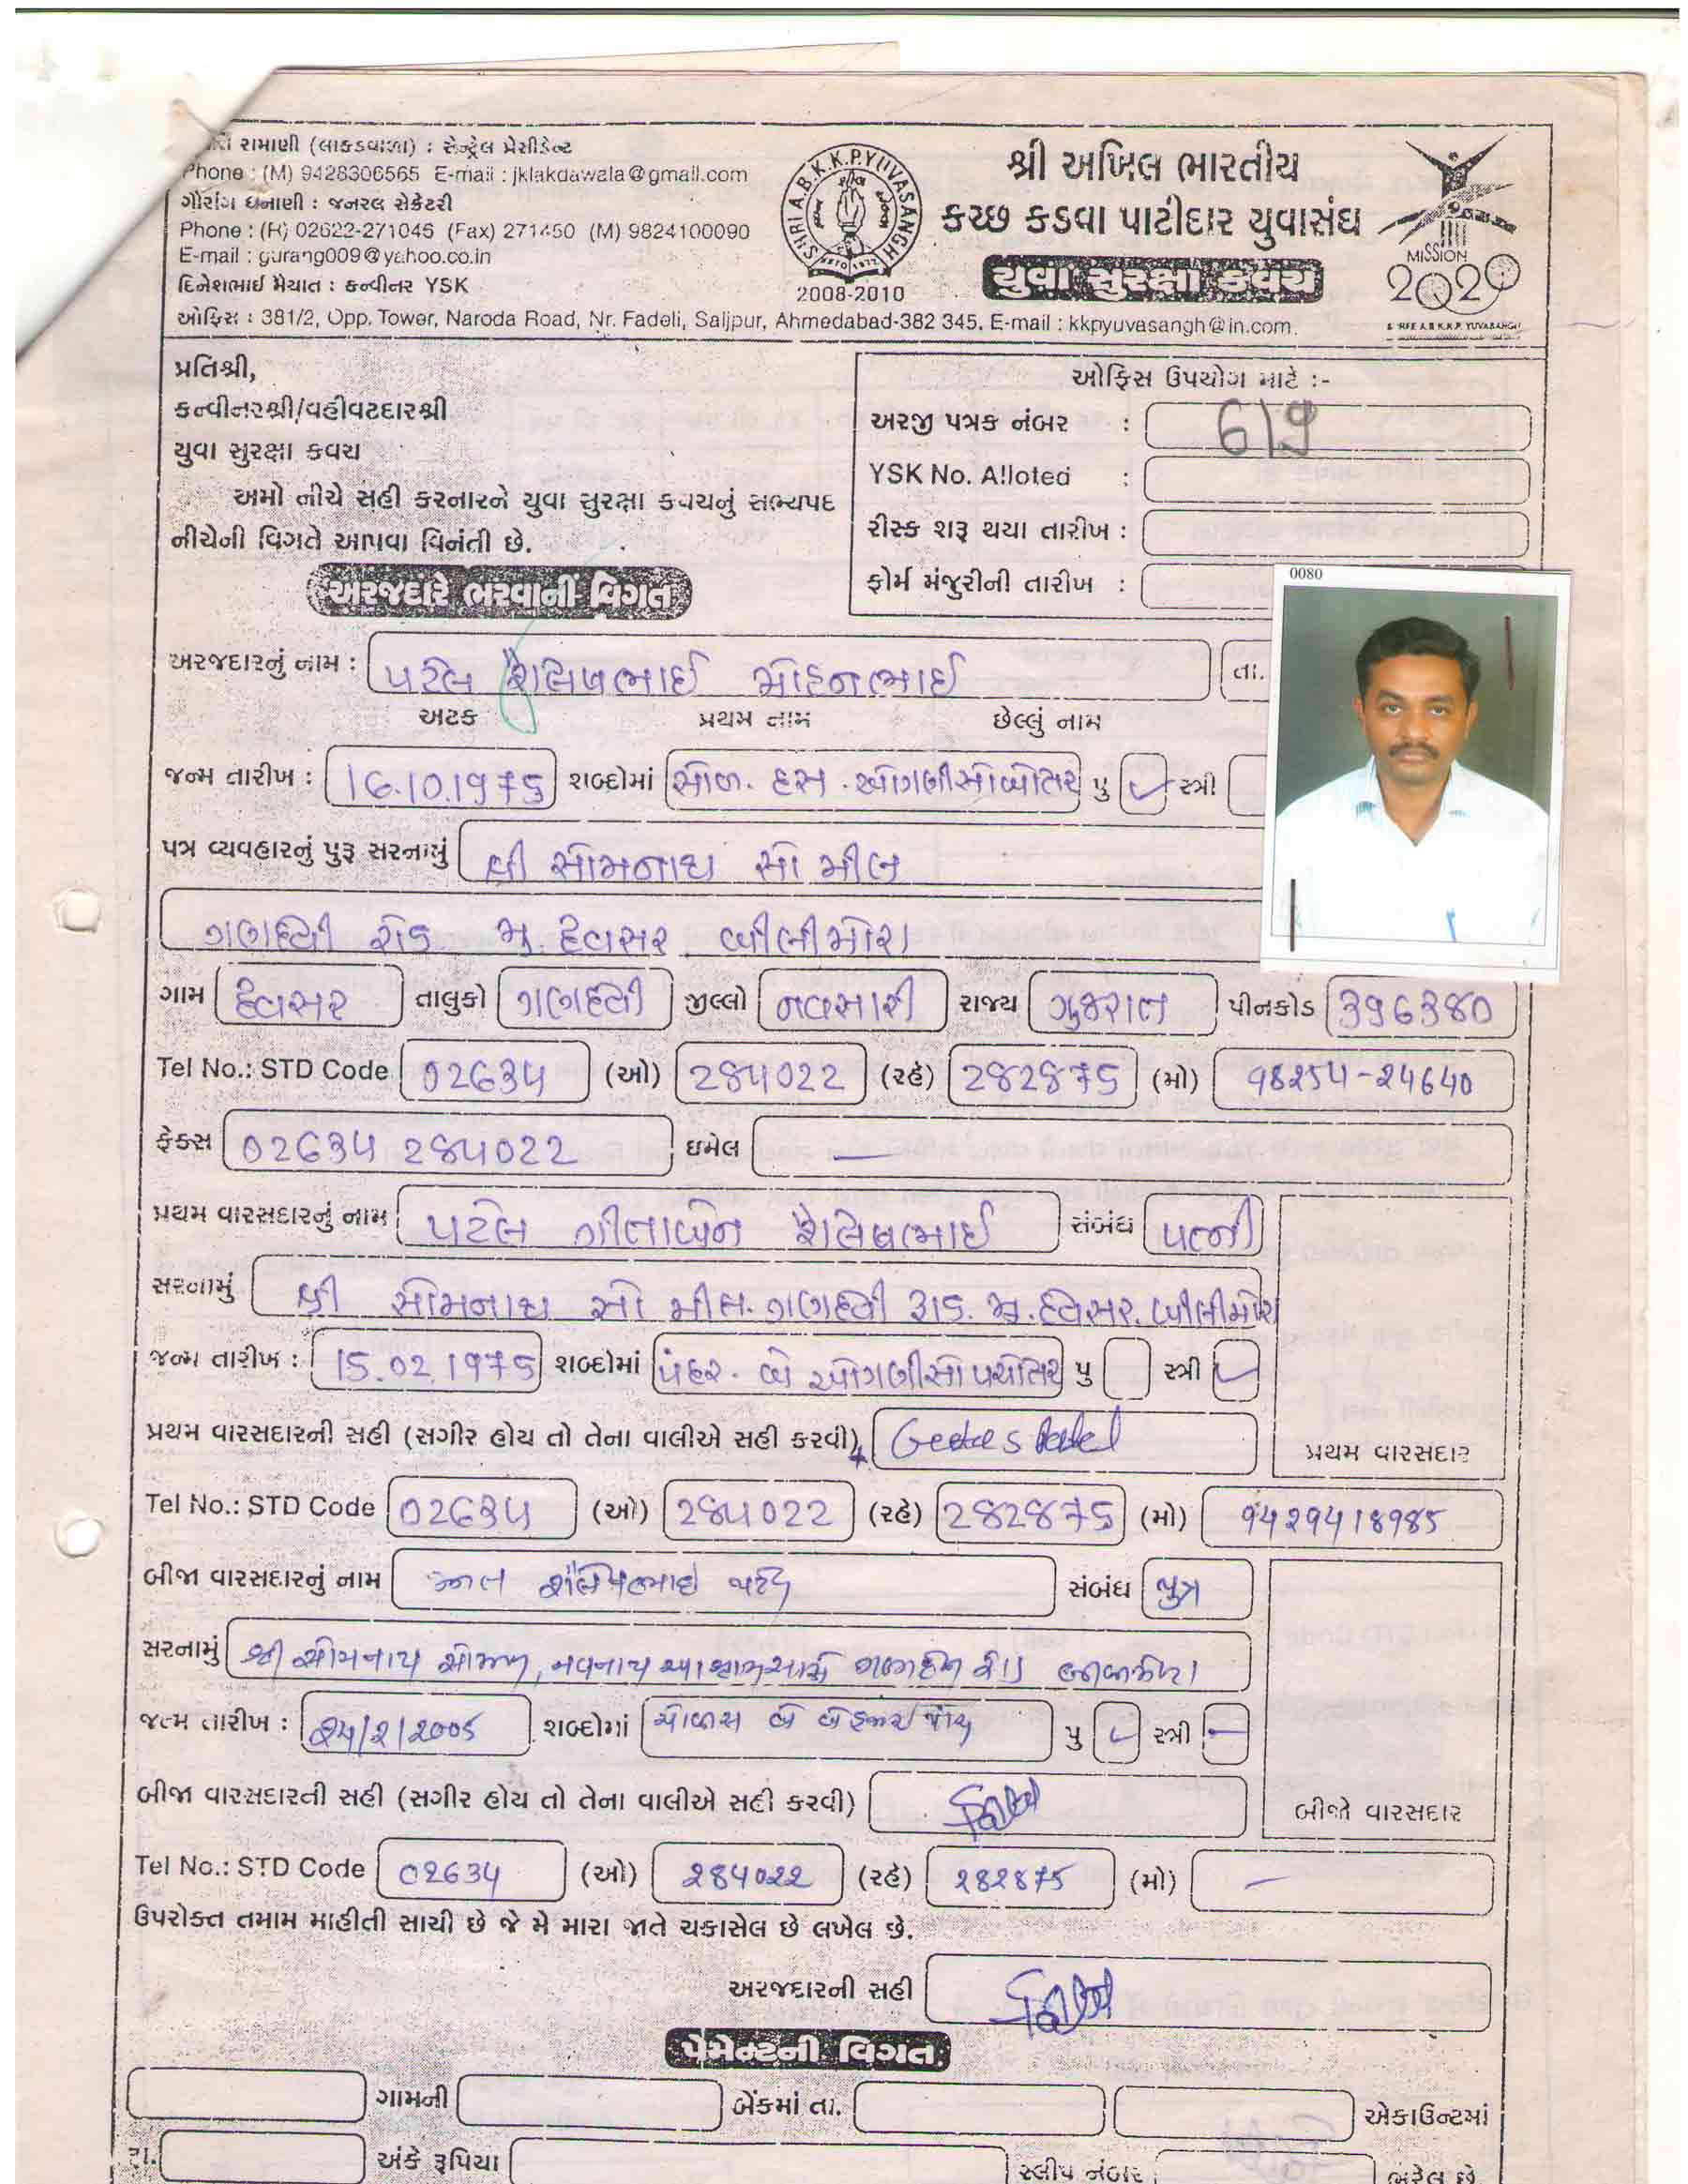 રામાણી (લાકડાવાળા) : સેન્ટ્રેલ પ્રેસીડેન્ટ
Phone : (M) 9428306565 E-mail : jklakdawala@gmail.com
ગૌરાંગ ધનાણી : જનરલ સેક્રેટરી
Phone : (R) 02622-271045 (Fax) 271450 (M) 9824100090
E-mail : gurang009@yahoo.co.in
દિનેશભાઈ મૈયાત : કન્વીનર YSK
ઓફિસ : 381/2, Opp. Tower, Naroda Road, Nr. Fadeli, Saijpur, Ahmedabad-382 345, E-mail : kkpyuvasangh@in.com.
SHRI A.B.K.K.P.YUVASANGH
2008-2010
શ્રી અખિલ ભારતીય
કચ્છ કડવા પાટીદાર યુવાસંઘ
યુવા સુરક્ષા કવચ
MISSION
2020
SHREE A.B.K.K.P. YUVASANGH
પ્રતિશ્રી,
કન્વીનરશ્રી/વહીવટદારશ્રી
યુવા સુરક્ષા કવચ
અમો નીચે સહી કરનારને યુવા સુરક્ષા કવચનું સભ્યપદ
નીચેની વિગતે આપવા વિનંતી છે.
ઓફિસ ઉપયોગ માટે :-
અરજી પત્રક નંબર : 619
YSK No. Alloted :
રીસ્ક શરૂ થયા તારીખ :
ફોર્મ મંજુરીની તારીખ :
0080
અરજદારે ભરવાની વિગત
અરજદારનું નામ : પટેલ શૈલેષભાઈ મોહનભાઈ તા.
અટક પ્રથમ નામ છેલ્લું નામ
જન્મ તારીખ : 16.10.1975 શબ્દોમાં સોળ. દસ. ઓગણીસોપંચોતેર પુ ✓ સ્ત્રી
પત્ર વ્યવહારનું પુરૂ સરનામું શ્રી સોમનાથ સો મીલ
ગણદેવી રોડ મુ. દેવસર બીલીમોરા
ગામ દેવસર તાલુકો ગણદેવી જીલ્લો નવસારી રાજ્ય ગુજરાત પીનકોડ 396380
Tel No.: STD Code 02634 (ઓ) 284022 (રહે) 282875 (મો) 98254-24640
ફેક્સ 02634 284022 ઇમેલ —
પ્રથમ વારસદારનું નામ પટેલ ગીતાબેન શૈલેષભાઈ સંબંધ પત્ની
સરનામું શ્રી સોમનાથ સો મીલ. ગણદેવી રોડ. મુ. દેવસર. બીલીમોરા
જન્મ તારીખ : 15.02.1975 શબ્દોમાં પંદર. બે ઓગણીસો પંચોતેર પુ સ્ત્રી ✓
પ્રથમ વારસદારની સહી (સગીર હોય તો તેના વાલીએ સહી કરવી) Geeta S Patel
પ્રથમ વારસદાર
Tel No.: STD Code 02634 (ઓ) 284022 (રહે) 282875 (મો) 9429418985
બીજા વારસદારનું નામ શૈલેષભાઈ પટેલ સંબંધ પુત્ર
સરનામું શ્રી સોમનાથ સોમીલ, નવનાથ આશ્રમ સામે ગણદેવી રોડ બીલીમોરા
જન્મ તારીખ : 24/2/2005 શબ્દોમાં ચોવીસ બે બે હજાર પાંચ પુ ✓ સ્ત્રી —
બીજા વારસદારની સહી (સગીર હોય તો તેના વાલીએ સહી કરવી)
બીજો વારસદાર
Tel No.: STD Code 02634 (ઓ) 284022 (રહે) 282875 (મો) —
ઉપરોક્ત તમામ માહીતી સાચી છે જે મે મારા જાતે ચકાસેલ છે લખેલ છે.
અરજદારની સહી
પેમેન્ટની વિગત
ગામની બેંકમાં તા. એકાઉન્ટમાં
રૂા. અંકે રૂપિયા સ્લીપ નંબર ભરેલ છે.